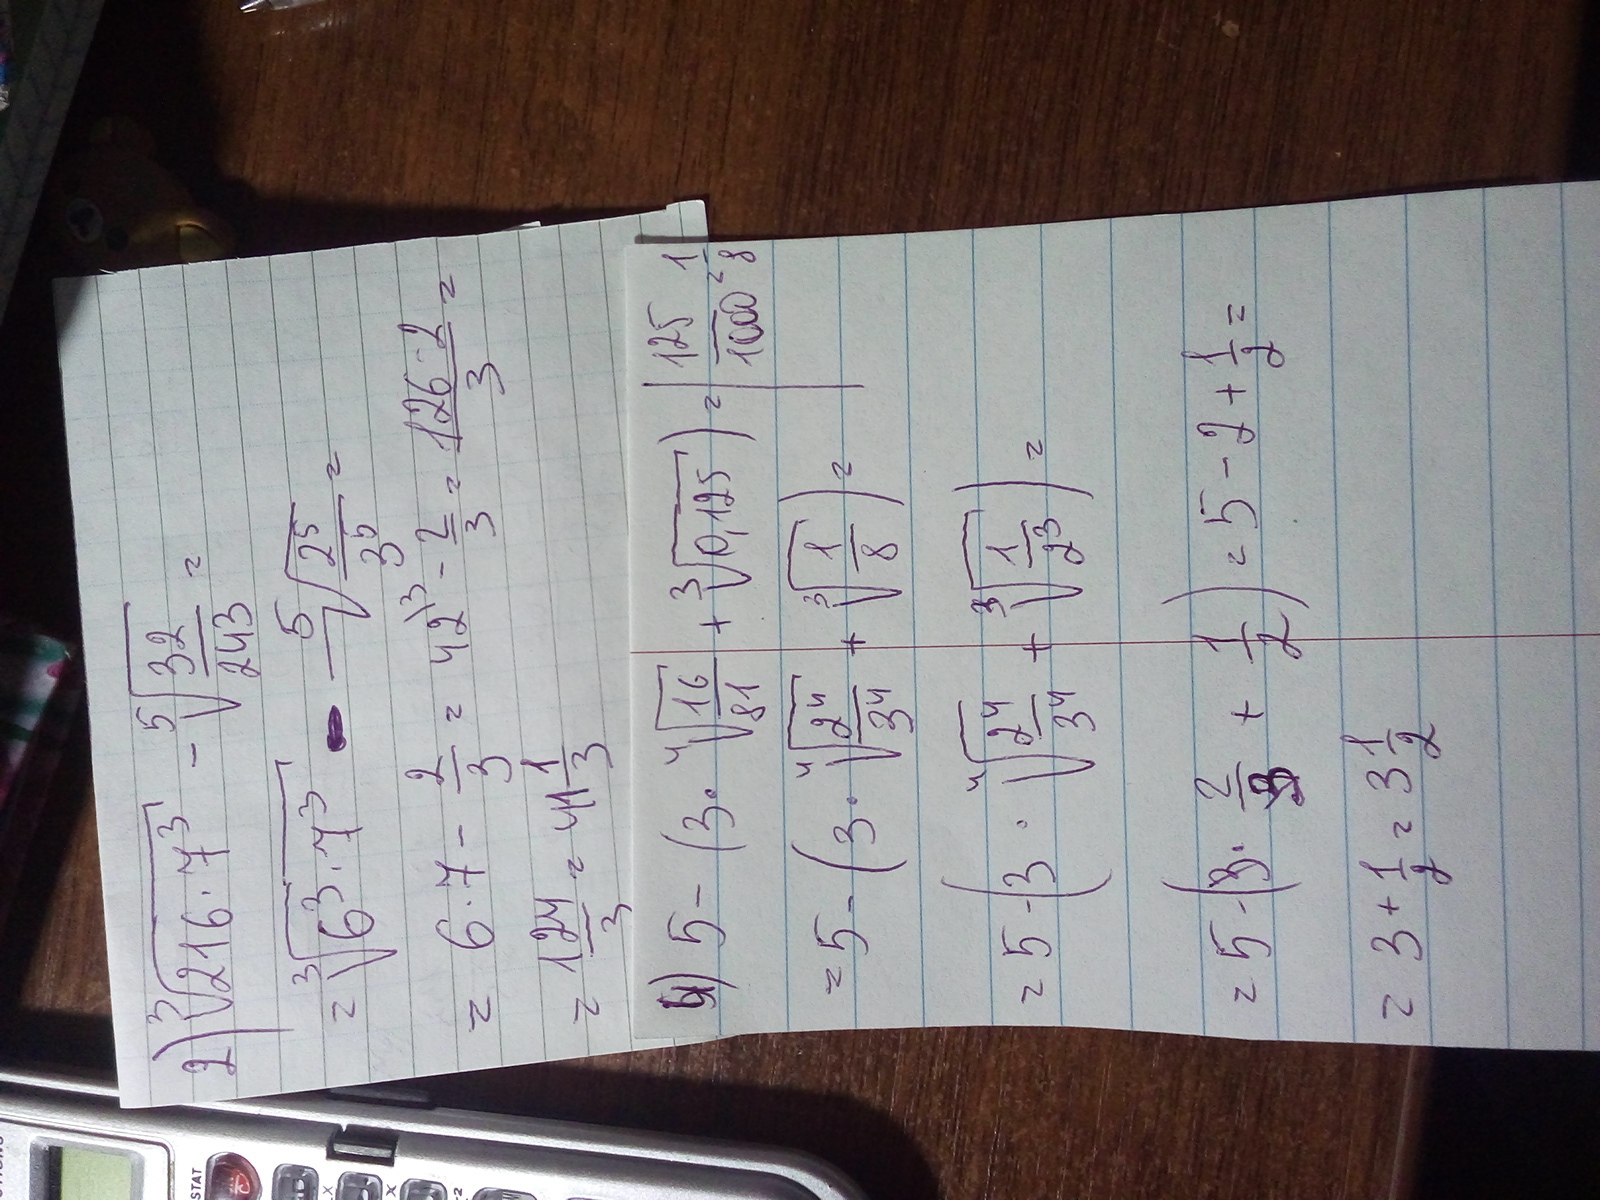 2) ∛(216 · 7³) − ⁵√(32/243) =
= ∛(6³ · 7³) − ⁵√(2⁵/3⁵) =
= 6 · 7 − 2/3 = 42\³ − 2/3 = (126 · 2)/3 =
= 124/3 = 41 1/3
4) 5 − (3 · ⁴√(16/81) + ∛(0,125)) = | 125/1000 = 1/8
= 5 − (3 · ⁴√(2⁴/3⁴) + ∛(1/8)) =
= 5 − (3 · ⁴√(2⁴/3⁴) + ∛(1/2³)) =
= 5 − (3 · 2/3 + 1/2) = 5 − 2 + 1/2 =
= 3 + 1/2 = 3 1/2
STAT